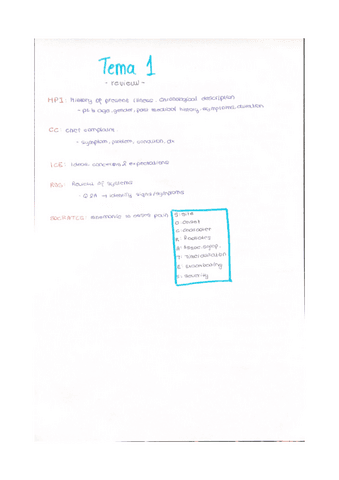 Tema 1
- review -
HPI: history of presence illness. chronological description
- pt's age, gender, past medical history, symptoms, duration
CC: chief complaint
- symptom, problem, condition, d+
ICE: Ideas concerns & expectations
ROS: Review of systems
→ identify signs/symptoms
SOCRATES: mnemonic to assess pain
S: Site
O: Onset
C: Character
R: Radiating
A: Assoc. symp.
T: Time/duration
E: Exacerbating
S: Severity